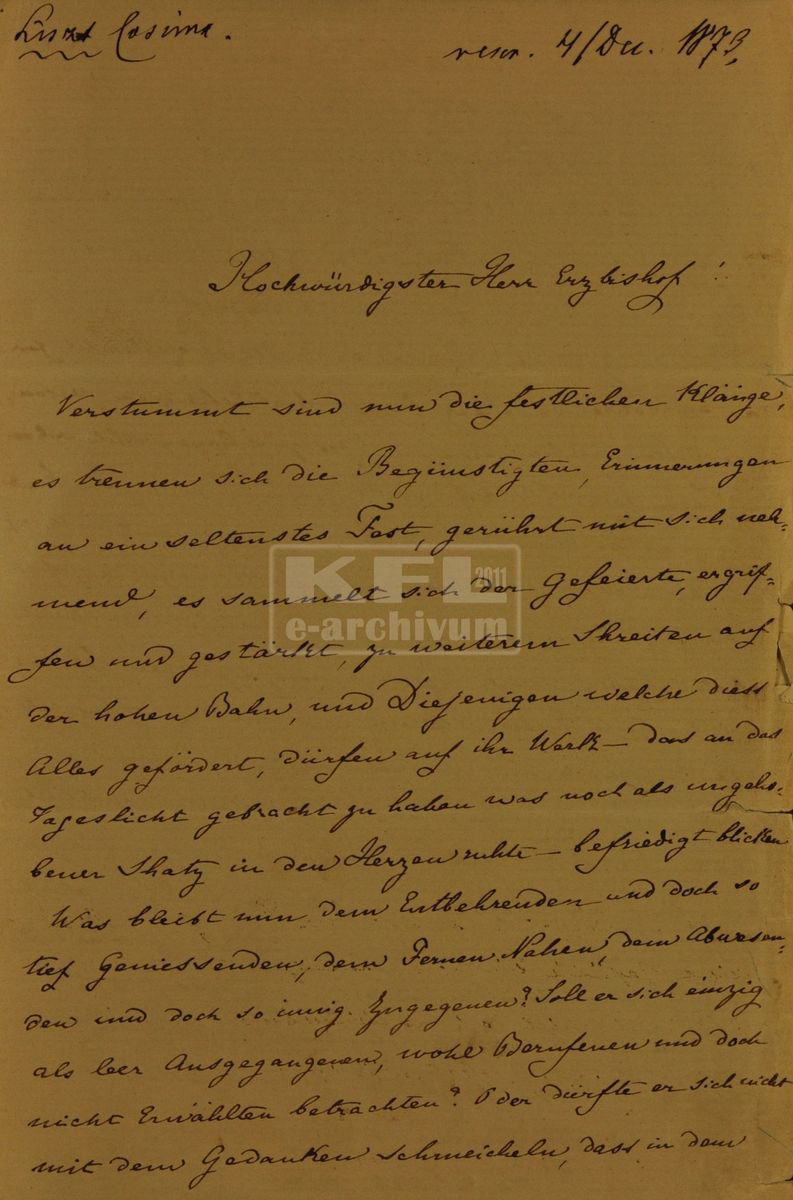 Liszt Cosima.
resv. 4/Dec. 1873,
Hochwürdigster Herr Erzbishof!
Verstummt sind nun die festlichen Klänge,
es trennen sich die Begünstigten, Erinnerungen
an ein seltenstes Fest, gerührt mit sich neh-
mend, es sammelt sich der Gefeierte, ergrif-
KFL 2011
e-archivum
fen und gestärkt, zu weiterem Shreiten auf
der hohen Bahn, und Diejenigen welche diess
Alles gefördert, dürfen auf ihr Werk – das an das
Tageslicht gebracht zu haben was noch als ungeho-
bener Shatz in den Herzen ruhte – befriedigt blicken
Was bleibt nun dem Entbehrenden und doch so
tief Geniessenden, dem Fernen Nahen, dem Abwesen-
den und doch so innig Zugegenen? Soll er sich einzig
als leer Ausgegangenen, wohl Berufenen und doch
nicht Erwählten betrachten? Oder dürfte er sich nicht
mit dem Gedanken schmeicheln, dass in dem